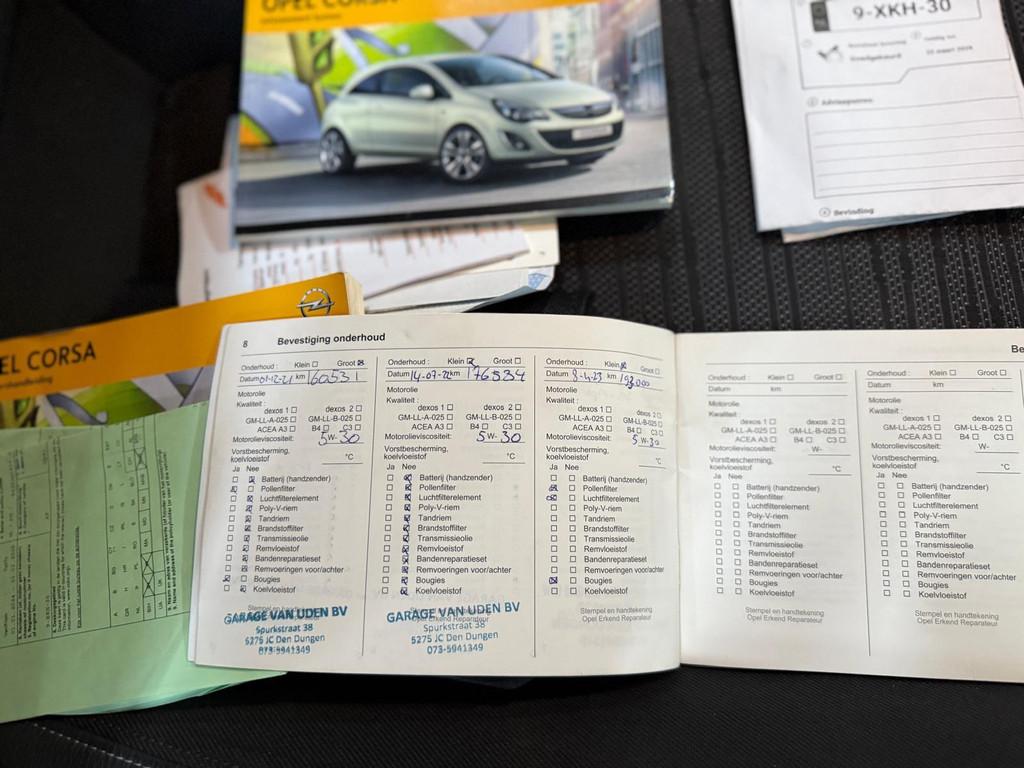 OPEL CORSA
9-XKH-30
Goedgekeurd
Adviespunten
Bevinding
EL CORSA
8 Bevestiging onderhoud
Onderhoud : Klein Groot
Datum 01-12-21 km 160531
Motorolie
Kwaliteit :
dexos 1 dexos 2
GM-LL-A-025 GM-LL-B-025
ACEA A3 B4 C3
Motorolieviscositeit: 5W-30
Vorstbescherming,
koelvloeistof °C
Ja Nee
Batterij (handzender)
Pollenfilter
Luchtfilterelement
Poly-V-riem
Tandriem
Brandstoffilter
Transmissieolie
Remvloeistof
Bandenreparatieset
Remvoeringen voor/achter
Bougies
Koelvloeistof
Stempel en handtekening
GARAGE VAN UDEN BV
Spurkstraat 38
5275 JC Den Dungen
073-5941349
Onderhoud : Klein Groot
Datum 14-07-22 km 176534
Motorolie
Kwaliteit :
dexos 1 dexos 2
GM-LL-A-025 GM-LL-B-025
ACEA A3 B4 C3
Motorolieviscositeit: 5W-30
Vorstbescherming,
koelvloeistof °C
Ja Nee
Batterij (handzender)
Pollenfilter
Luchtfilterelement
Poly-V-riem
Tandriem
Brandstoffilter
Transmissieolie
Remvloeistof
Bandenreparatieset
Remvoeringen voor/achter
Bougies
Koelvloeistof
GARAGE VAN UDEN BV
Opel Erkend Reparateur
Spurkstraat 38
5275 JC Den Dungen
073-5941349
Onderhoud : Klein Groot
Datum 8-4-23 km 193000
Motorolie
Kwaliteit :
dexos 1 dexos 2
GM-LL-A-025 GM-LL-B-025
ACEA A3 B4 C3
Motorolieviscositeit: 5W-30
Vorstbescherming,
koelvloeistof °C
Ja Nee
Batterij (handzender)
Pollenfilter
Luchtfilterelement
Poly-V-riem
Tandriem
Brandstoffilter
Transmissieolie
Remvloeistof
Bandenreparatieset
Remvoeringen voor/achter
Bougies
Koelvloeistof
Stempel en handtekening
Opel Erkend Reparateur
Be
Onderhoud : Klein Groot
Datum km
Motorolie
Kwaliteit :
dexos 1 dexos 2
GM-LL-A-025 GM-LL-B-025
ACEA A3 B4 C3
Motorolieviscositeit: W-
Vorstbescherming,
koelvloeistof °C
Ja Nee
Batterij (handzender)
Pollenfilter
Luchtfilterelement
Poly-V-riem
Tandriem
Brandstoffilter
Transmissieolie
Remvloeistof
Bandenreparatieset
Remvoeringen voor/achter
Bougies
Koelvloeistof
Stempel en handtekening
Opel Erkend Reparateur
Onderhoud : Klein Groot
Datum km
Motorolie
Kwaliteit :
dexos 1 dexos 2
GM-LL-A-025 GM-LL-B-025
ACEA A3 B4 C3
Motorolieviscositeit: W-
Vorstbescherming,
koelvloeistof °C
Ja Nee
Batterij (handzender)
Pollenfilter
Luchtfilterelement
Poly-V-riem
Tandriem
Brandstoffilter
Transmissieolie
Remvloeistof
Bandenreparatieset
Remvoeringen voor/achter
Bougies
Koelvloeistof
Stempel en handtekening
Opel Erkend Reparateur